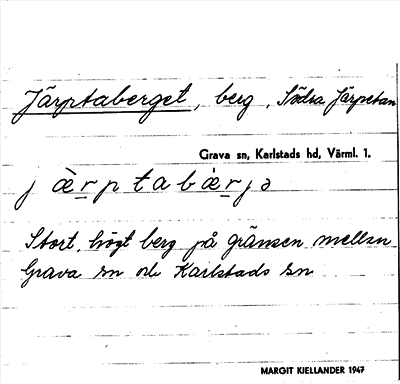 Järptaberget, berg, Södra Järpetan
Grava sn, Karlstads hd, Värml. 1.
j æ̀r̲p t a b æ̀r̲j ə
Stort, högt berg på gränsen mellan
Grava sn och Karlstads sn
MARGIT KJELLANDER 1947